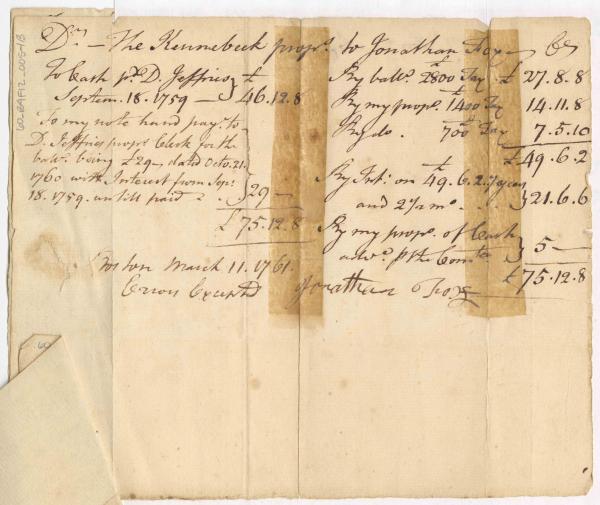 Dr — The Kennebeck propr.s to Jonathan Fox Cr
To Cash pr. D. Jeffries } £
Septem. 18. 1759 — } 46.12.8
To my note hand pay.e to
D. Jeffries propr.s Clerk for the
bal.e being £29— dated Octo. 21.
1760 with Interest from Sep.r
18. 1759. untill paid } 29 —
£ 75.12.8
By bal.e 2800 Tax £ 27.8.8
By my propn. 1400 Tax 14.11.8
By do. 700 Tax 7.5.10
£ 49.6.2
By Int: on 49.6.2. 7 years
and 2½ mo. } 21.6.6
By my propn. of Cash
adv.d pr the Comtee } 5 —
£ 75.12.8
Boston March 11. 1761.
Errors Excepted Jonathan Fox